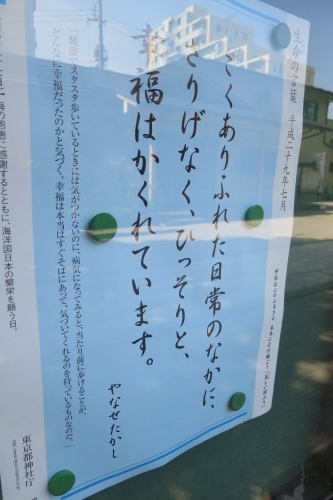 生命の言葉　平成二十九年七月
ごくありふれた日常のなかに、
さりげなく、ひっそりと、
幸福はかくれています。
やなせたかし
「健康でスタスタ歩いているときには気がつかないのに、病気になってみると、当たり前に歩けることが、
どんなに幸福だったのかと気づく。幸福は本当はすぐそばにあって、気づいてくれるのを待っているものなのだ。」
海の恩恵に感謝するとともに、海洋国日本の繁栄を願う日。
東京都神社庁